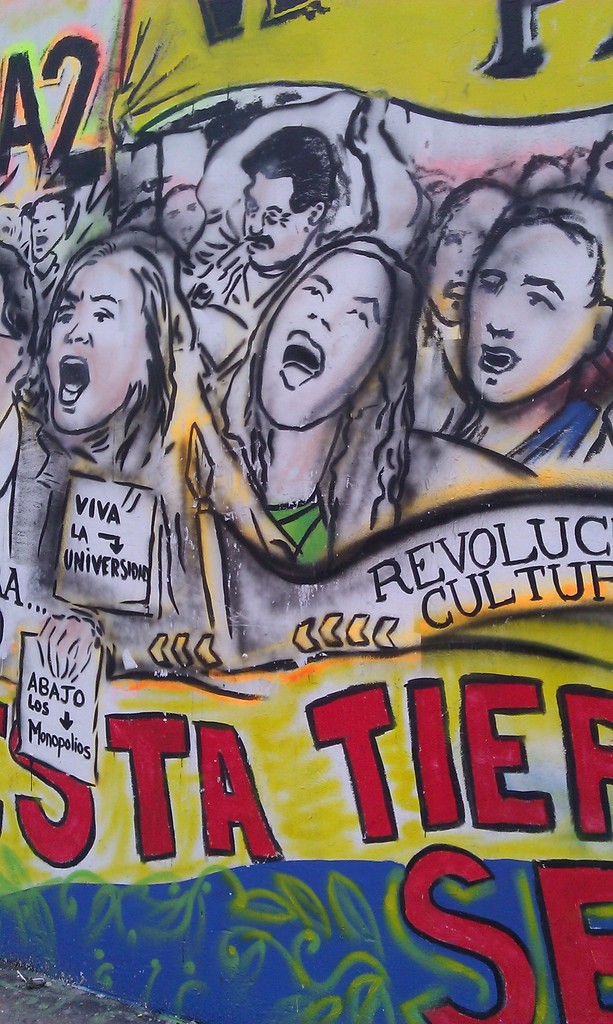 A2
VIVA
LA
UNIVERSIDAD
REVOLUC
CULTUR
RA...
ABAJO
LOS
Monopolios
ESTA TIER
SE